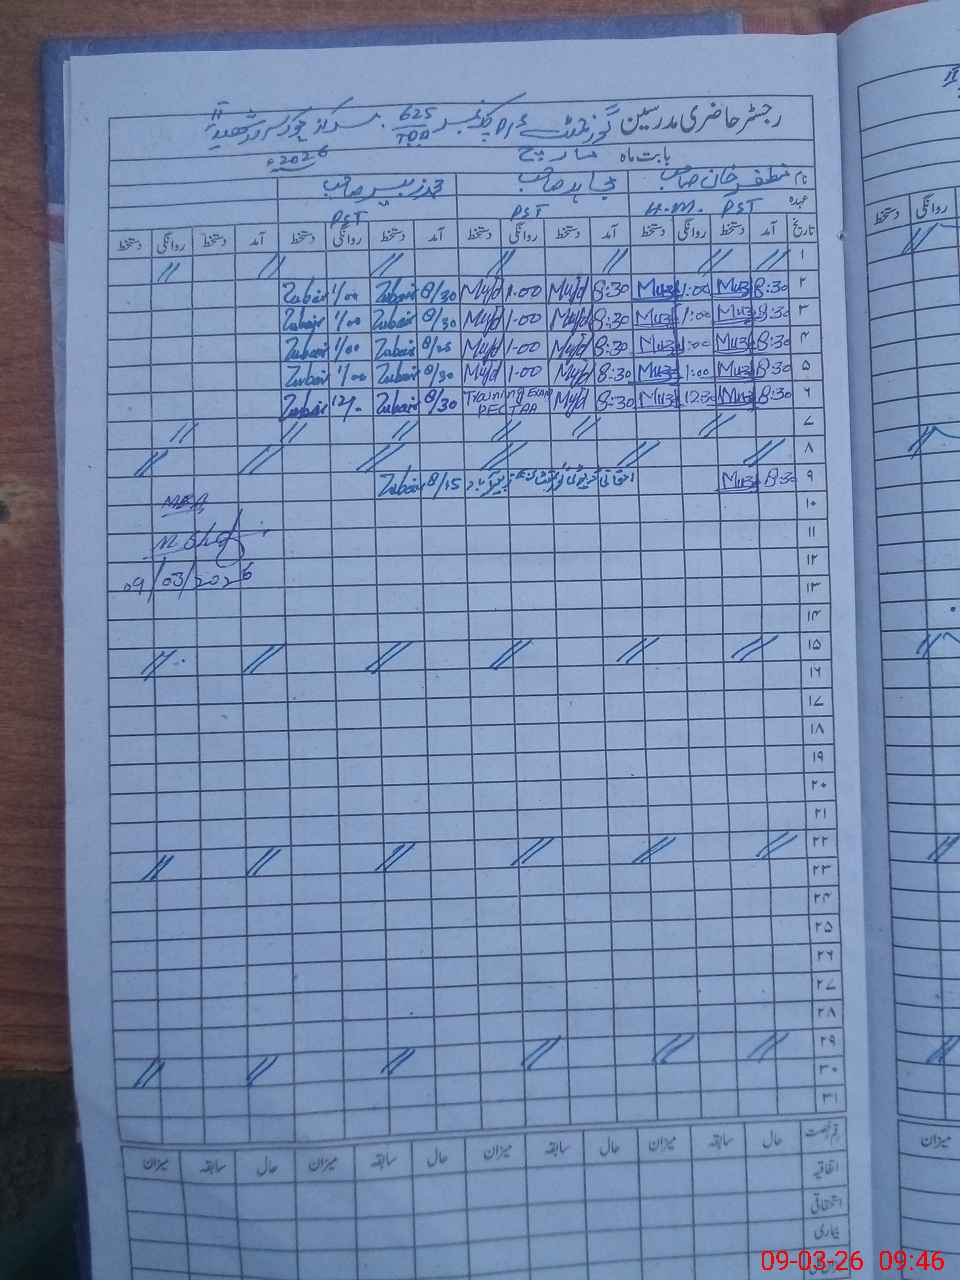 رجسٹر حاضری مدرسین گورنمنٹ پرائمری 625 TDA
بابت ماہ مارچ 2026ء
نام مظفر خان صاحب مجاہد صاحب محمد زبیر صاحب
عہدہ H.M. PST PST PST
تاریخ آمد دستخط روانگی دستخط آمد دستخط روانگی دستخط آمد دستخط روانگی دستخط آمد دستخط روانگی دستخط
۱ // // // // // // //
۲ 8:30 Muz 1:00 Muz 8:30 Myd 1-00 Myd 8/30 Zubair 1/00 Zubair
۳ 8:30 Muz 1:00 Muz 8:30 Myd 1-00 Myd 8/30 Zubair 1/00 Zubair
۴ 8:30 Muz 1:00 Muz 8:30 Myd 1-00 Myd 8/25 Zubair 1/00 Zubair
۵ 8:30 Muz 1:00 Muz 8:30 Myd 1-00 Myd 8/30 Zubair 1/00 Zubair
۶ 8:30 Muz 12:30 Muz 8:30 Myd Training Exam PECTAA 8/30 Zubair Zubair
۷ // // // // // //
۸ // // // // // //
۹ 8:30 Muz امتحانی ڈیوٹی 8/15 Zubair
۱۰ MEA
۱۱ M. Shafi
۱۲ 09/03/2026
۱۳
۱۴
۱۵ // // // // // //
۱۶
۱۷
۱۸
۱۹
۲۰
۲۱
۲۲ // // // // // //
۲۳
۲۴
۲۵
۲۶
۲۷
۲۸
۲۹ // // // // // //
۳۰
۳۱
قسم رخصت حال سابقہ میزان حال سابقہ میزان حال سابقہ میزان حال سابقہ میزان
اتفاقیہ
استحقاقی
بیماری
میزان
روانگی
دستخط
09-03-26 09:46